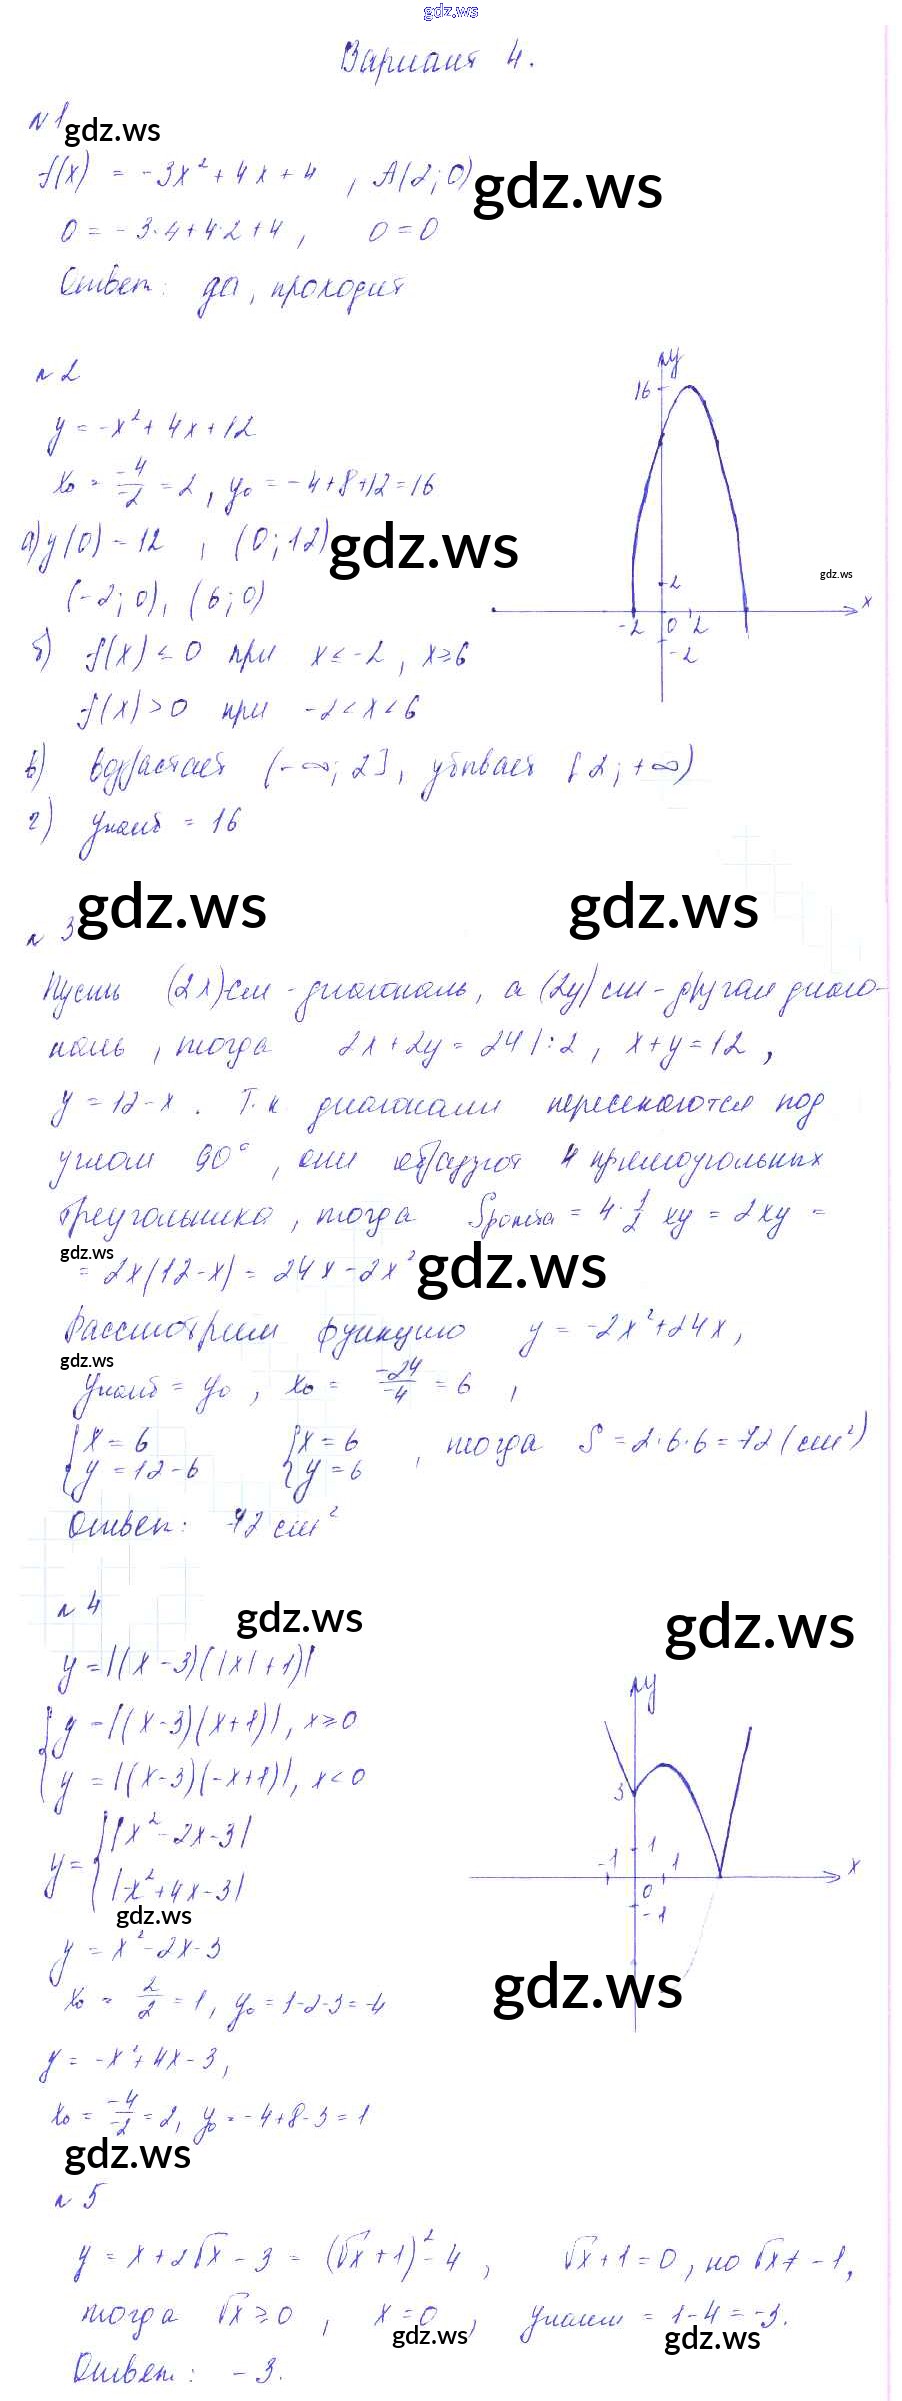 gdz.ws
Вариант 4.
№1
gdz.ws
f(x) = -3x² + 4x + 4 , A(2; 0)
gdz.ws
0 = -3·4+4·2+4 , 0 = 0
Ответ: да, проходит
№2
y = -x² + 4x + 12
x₀ = -4/-2 = 2 , y₀ = -4+8+12 = 16
а) y(0) = 12 , (0; 12)
gdz.ws
(-2; 0), (6; 0)
б) f(x) ≤ 0 при x ≤ -2 , x ≥ 6
f(x) > 0 при -2 < x < 6
в) возрастает (-∞; 2] , убывает [2; +∞)
г) yнаиб = 16
y
16
2
-2 0 2 x
-2
gdz.ws
gdz.ws gdz.ws
№3
Пусть (2x) см - диагональ, а (2y) см - другая диаго-
наль , тогда 2x + 2y = 24 |:2 , x + y = 12 ,
y = 12 - x . Т.к. диагонали пересекаются под
углом 90° , они образуют 4 прямоугольных
треугольника , тогда Sромба = 4·1/2 xy = 2xy =
gdz.ws
= 2x(12-x) = 24x - 2x²
gdz.ws
Рассмотрим функцию y = -2x² + 24x ,
gdz.ws
yнаиб = y₀ , x₀ = -24/-4 = 6 ,
{x = 6 {x = 6 , тогда S = 2·6·6 = 72 (см²)
{y = 12-6 {y = 6
Ответ: 72 см²
№4
gdz.ws
gdz.ws
y = |(x-3)(|x|+1)|
{y = |(x-3)(x+1)|, x ≥ 0
{y = |(x-3)(-x+1)|, x < 0
y = {|x² - 2x - 3|
{|-x² + 4x - 3|
gdz.ws
y
3
1
-1 0 1 x
-1
y = x² - 2x - 3
x₀ = 2/2 = 1 , y₀ = 1-2-3 = -4
gdz.ws
y = -x² + 4x - 3 ,
x₀ = -4/-2 = 2, y₀ = -4+8-3 = 1
gdz.ws
№5
y = x + 2√x - 3 = (√x + 1)² - 4 , √x + 1 = 0 , но √x ≠ -1 ,
тогда √x ≥ 0 , x = 0 , yнаим = 1-4 = -3.
gdz.ws gdz.ws
Ответ: -3.